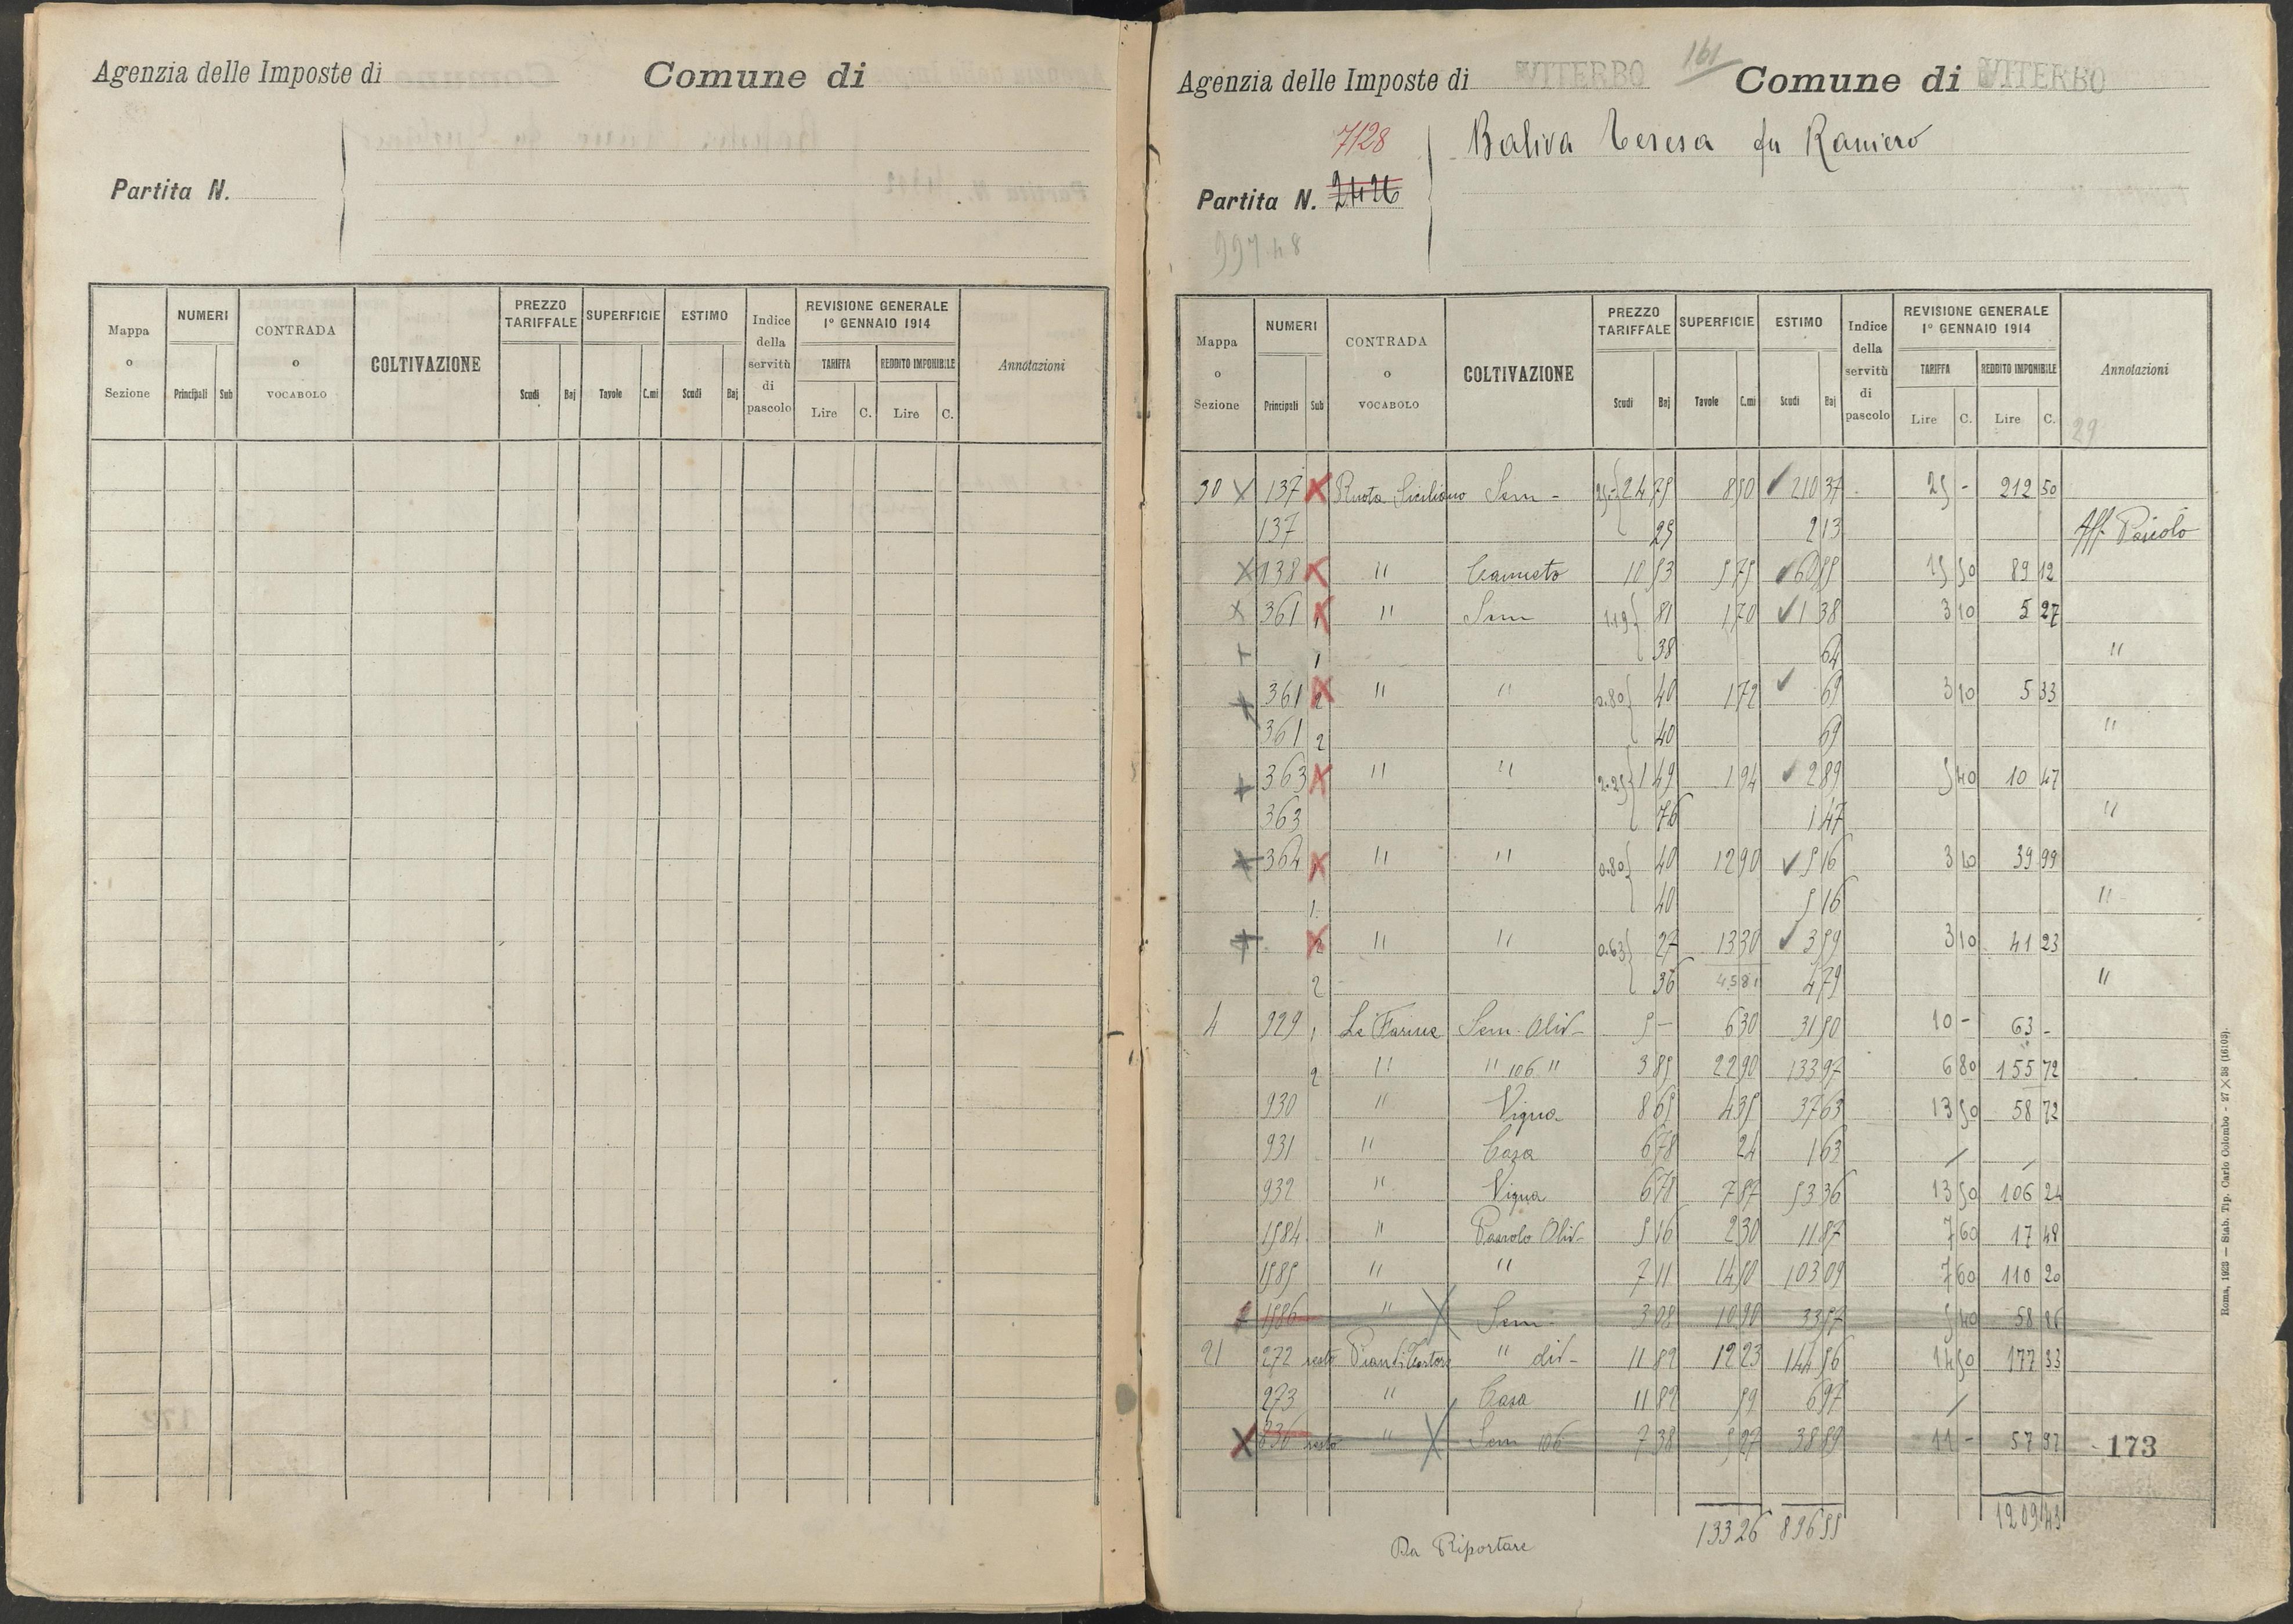 Agenzia delle Imposte di
Comune di
Partita N.
Mappa o Sezione
NUMERI
Principali Sub
CONTRADA o VOCABOLO
COLTIVAZIONE
PREZZO TARIFFALE
Scudi Baj
SUPERFICIE
Tavole C.mi
ESTIMO
Scudi Baj
Indice della servitù di pascolo
REVISIONE GENERALE 1º GENNAIO 1914
TARIFFA
Lire C.
REDDITO IMPONIBILE
Lire C.
Annotazioni
161
Agenzia delle Imposte di VITERBO Comune di VITERBO
7128
Baliva Teresa fu Raniero
Partita N. 2426
997.48
Mappa o Sezione
NUMERI
Principali Sub
CONTRADA o VOCABOLO
COLTIVAZIONE
PREZZO TARIFFALE
Scudi Baj
SUPERFICIE
Tavole C.mi
ESTIMO
Scudi Baj
Indice della servitù di pascolo
REVISIONE GENERALE 1º GENNAIO 1914
TARIFFA
Lire C.
REDDITO IMPONIBILE
Lire C.
Annotazioni
29
30 X 137 X Ruota Siciliano Sem - 25.- 24 75 8 50 ✓ 210 37 25 - 212 50
137 25 2 13 Aff. Pascolo
X 138 X " Canneto 10 53 5 75 ✓ 60 55 15 50 89 12
X 361 1 X " Sem 1.19 81 1 70 ✓ 1 38 3 10 5 27
1 38 64 "
X 361 2 X " " 0.80 40 1 72 ✓ 69 3 10 5 33
361 2 40 69 "
X 363 X " " 2.25 1 49 1 94 ✓ 2 89 5 40 10 47
363 76 1 47 "
X 364 X " " 0.80 40 12 90 ✓ 5 16 3 10 39 99
1 40 5 16 "
X 2 X " " 0.63 27 13 30 ✓ 3 59 3 10 41 23
2 36 45 81 4 79 "
4 929 1 Le Farine Sem. Oliv- 5 - 6 30 31 50 10 - 63 -
2 " " 106 " 5 85 22 90 133 97 6 80 155 72
930 " Vigna 8 65 4 35 37 63 13 50 58 72
931 " Casa 6 78 24 1 63 / /
932 " Vigna 6 78 7 87 53 36 13 50 106 24
1584 " Pascolo Oliv- 5 16 2 30 11 87 7 60 17 48
1585 " " 7 11 14 50 103 09 7 60 110 20
1586 " X Sem - 3 08 10 90 33 57 5 40 58 86
21 272 resto " div- 11 82 12 23 144 56 14 50 177 33
273 " Casa 11 82 59 6 97 /
X resto " X Sem 106 7 38 5 27 38 89 11 - 57 97
173
133 26 896 55 1209 43
Da Riportare
Roma, 1923 — Stab. Tip. Carlo Colombo - 27 X 38 (16103).